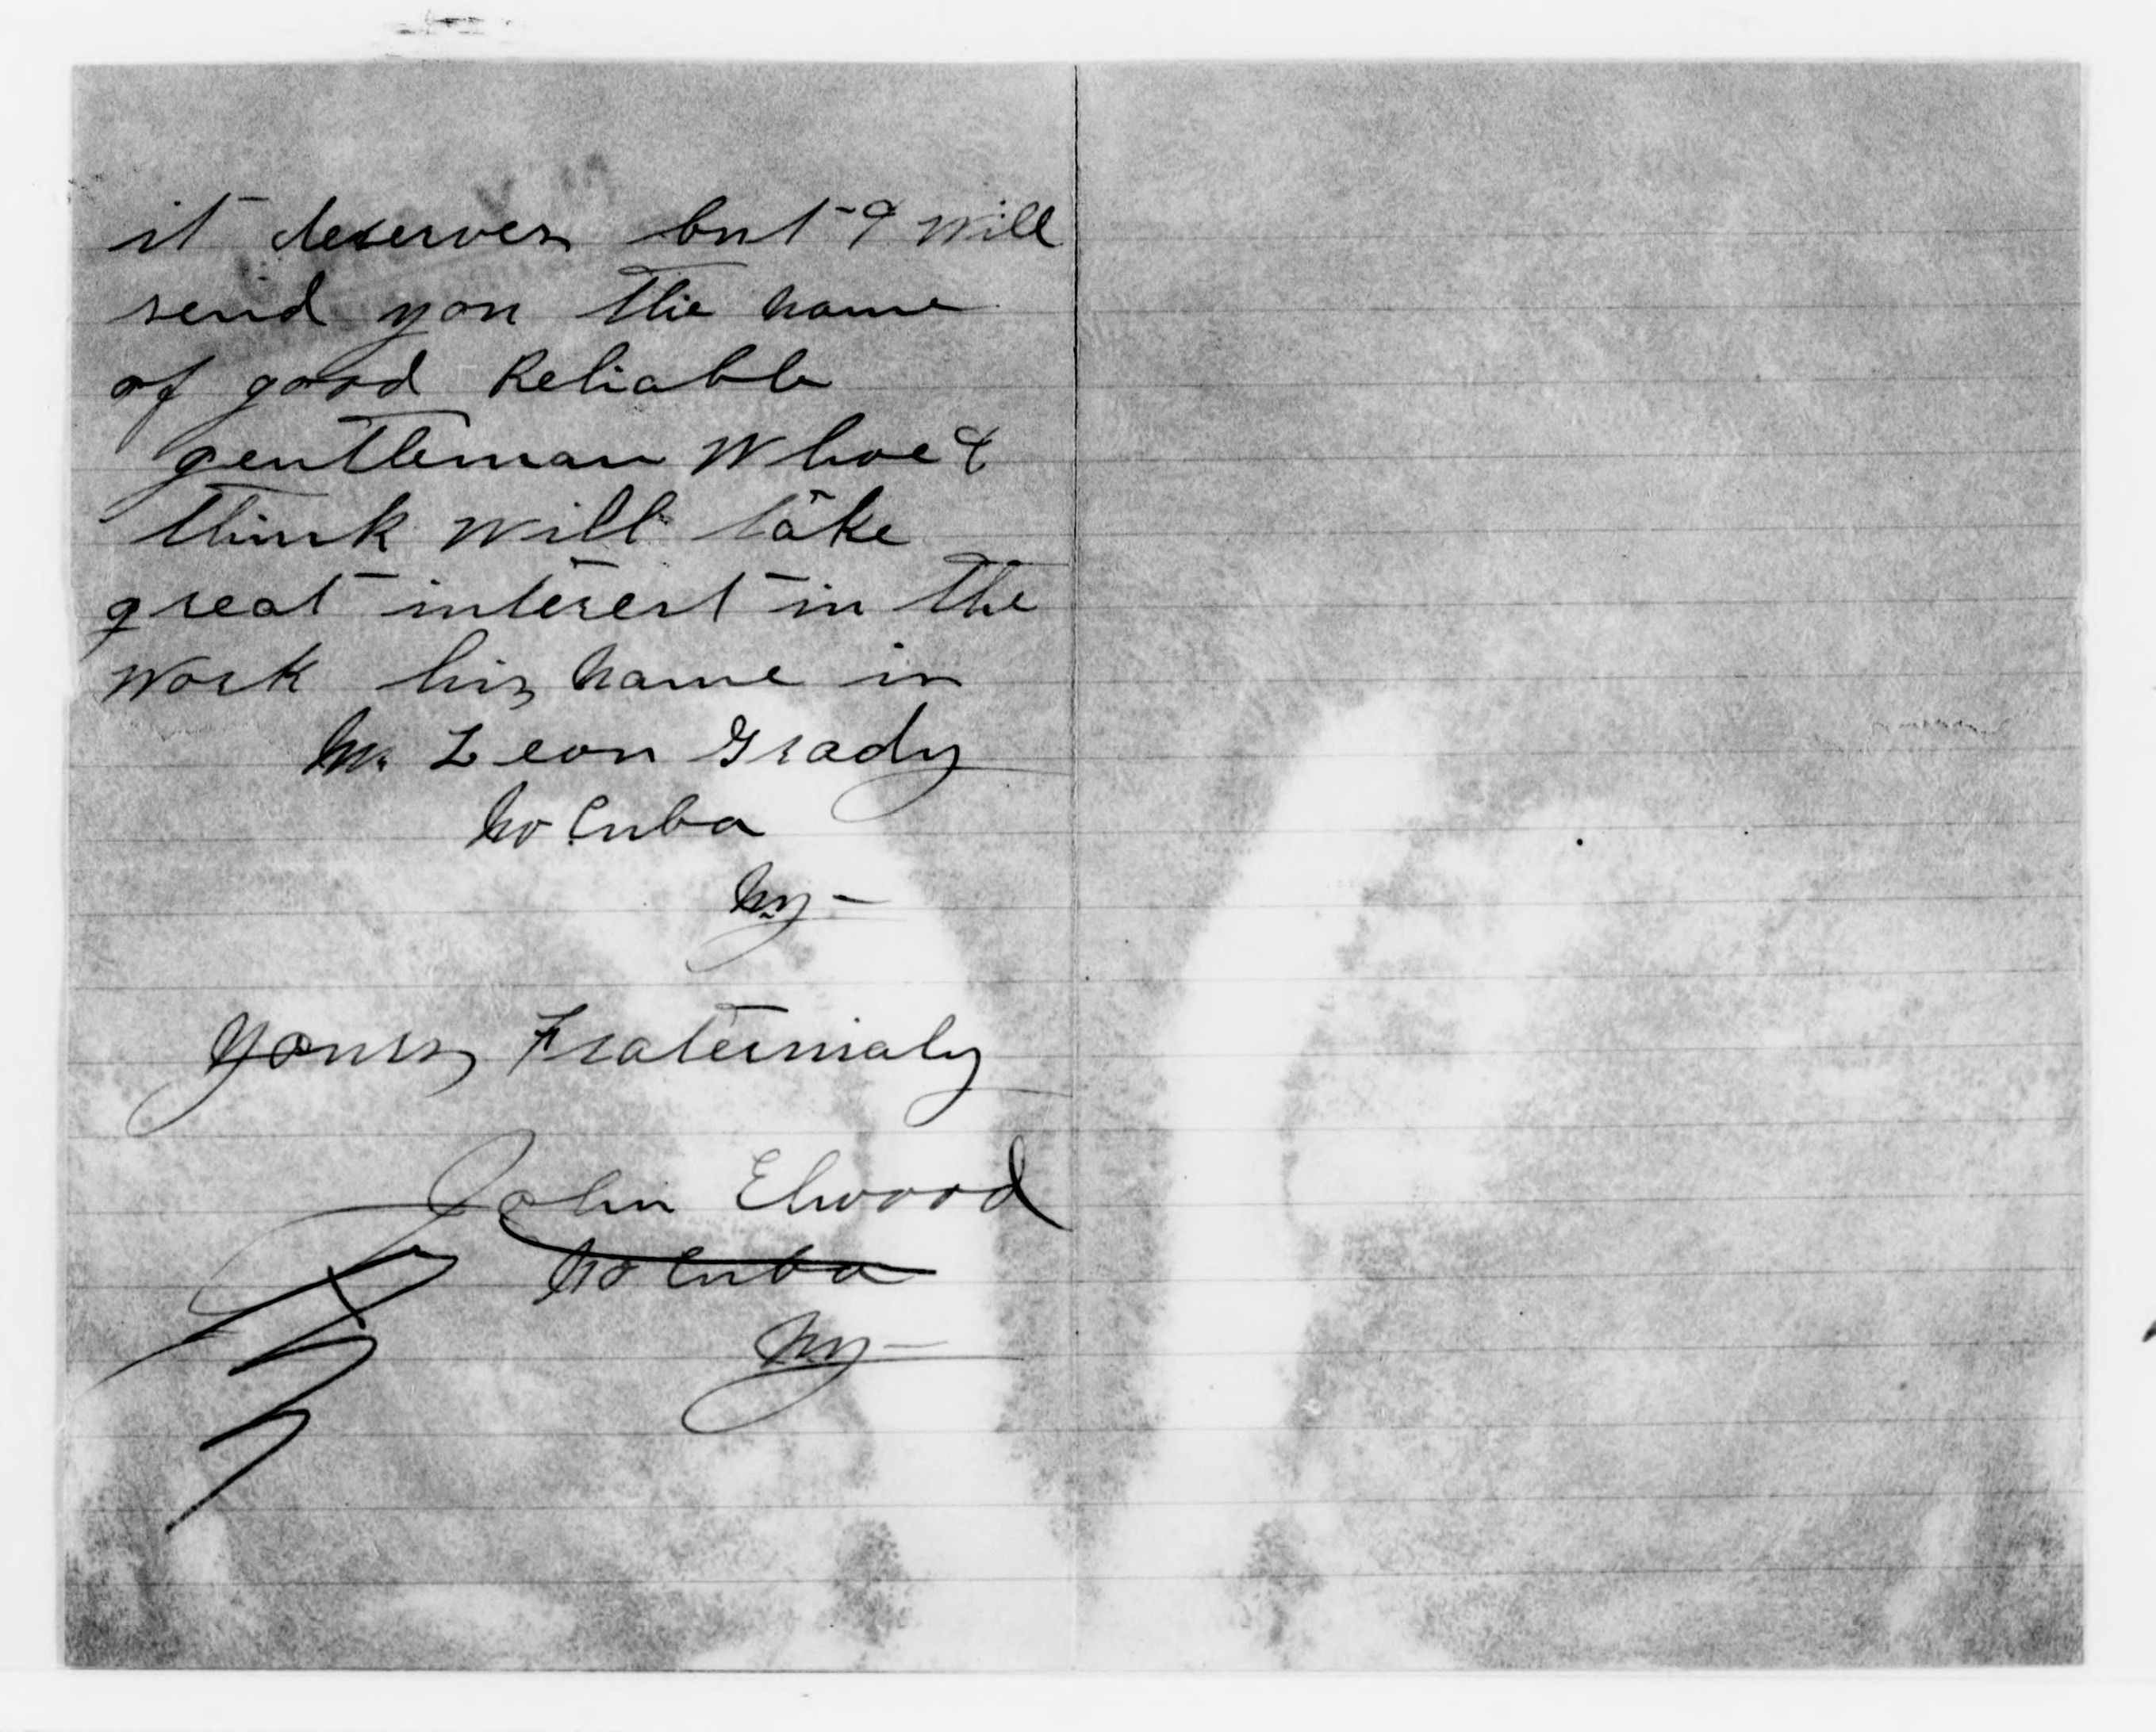 it deserves but I will
send you the name
of good Reliable
gentleman Whoe I
think will take
great interest in the
work his name is
Mr Leon Grady
No Cuba
Ny-
Yours Fraternialy
John Elwood
No Cuba
Ny-